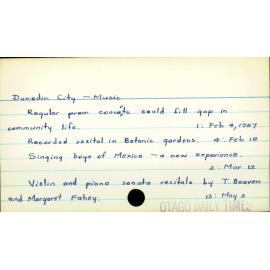 Dunedin City - Music
Regular prom concerts could fill gap in
community life. 1: Feb 4, 1967
Recorded recital in Botanic gardens. 4: Feb 18
Singing boys of Mexico - a new experience.
2: Mar 12
Violin and piano sonata recitals by T. Beaven
and Margaret Fahey. 13: May 2
OTAGO DAILY TIMES